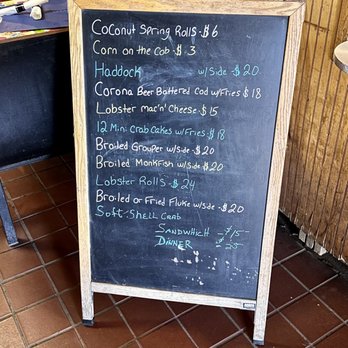 Coconut Spring Rolls - $6
Corn on the Cob - $3
Haddock w/side - $20
Corona Beer Battered Cod w/Fries $18
Lobster mac'n' Cheese - $15
12 Mini Crab Cakes w/Fries - $18
Broiled Grouper w/side - $20
Broiled Monkfish w/side - $20
Lobster Rolls - $24
Broiled or Fried Fluke w/side - $20
Soft-Shell Crab
Sandwhich - $15
Dinner